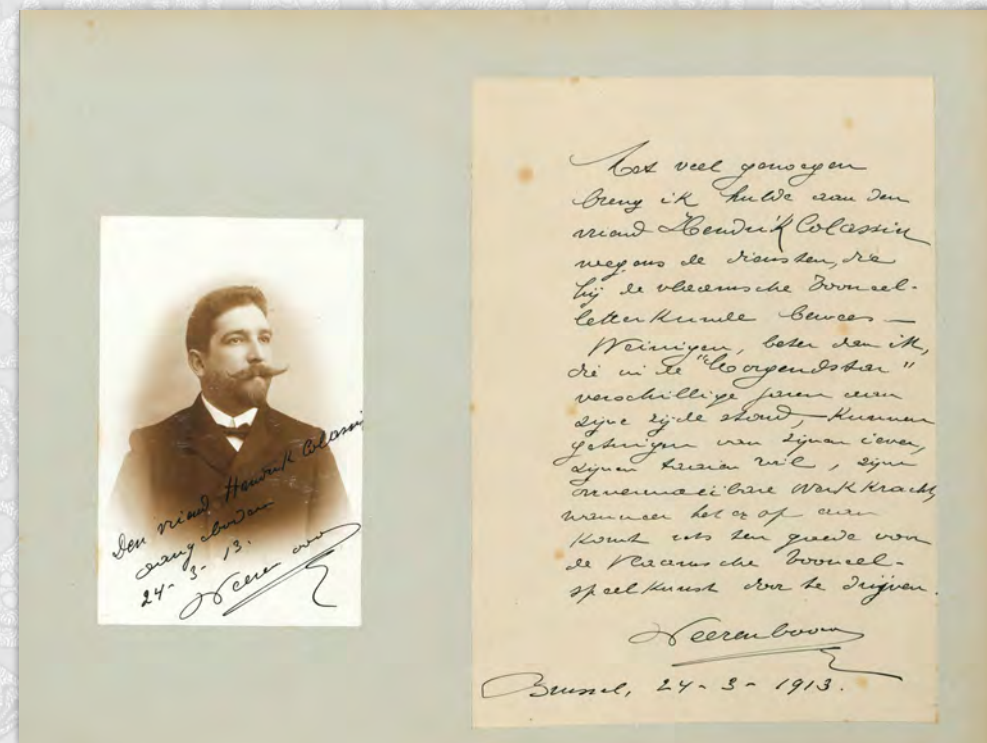 Den vriend Hendrik Colassin
aangeboden
24-3-13.
Neerenboom
Met veel genoegen
breng ik hulde aan den
vriend Hendrik Colassin
wegens de diensten, die
hij de vlaamsche Tooneel-
letterkunde bewees —
Weinigen, beter dan ik,
die in de "Morgendstar"
verschillige jaren aan
zijne zijde stond, kunnen
getuigen van zijnen iever,
zijnen taaien wil, zijne
onvermoeibare werkkracht,
wanneer het er op aan
komt iets ten goede van
de Vlaamsche Tooneel-
speelkunst door te drijven.
Neerenboom
Brussel, 24-3-1913.